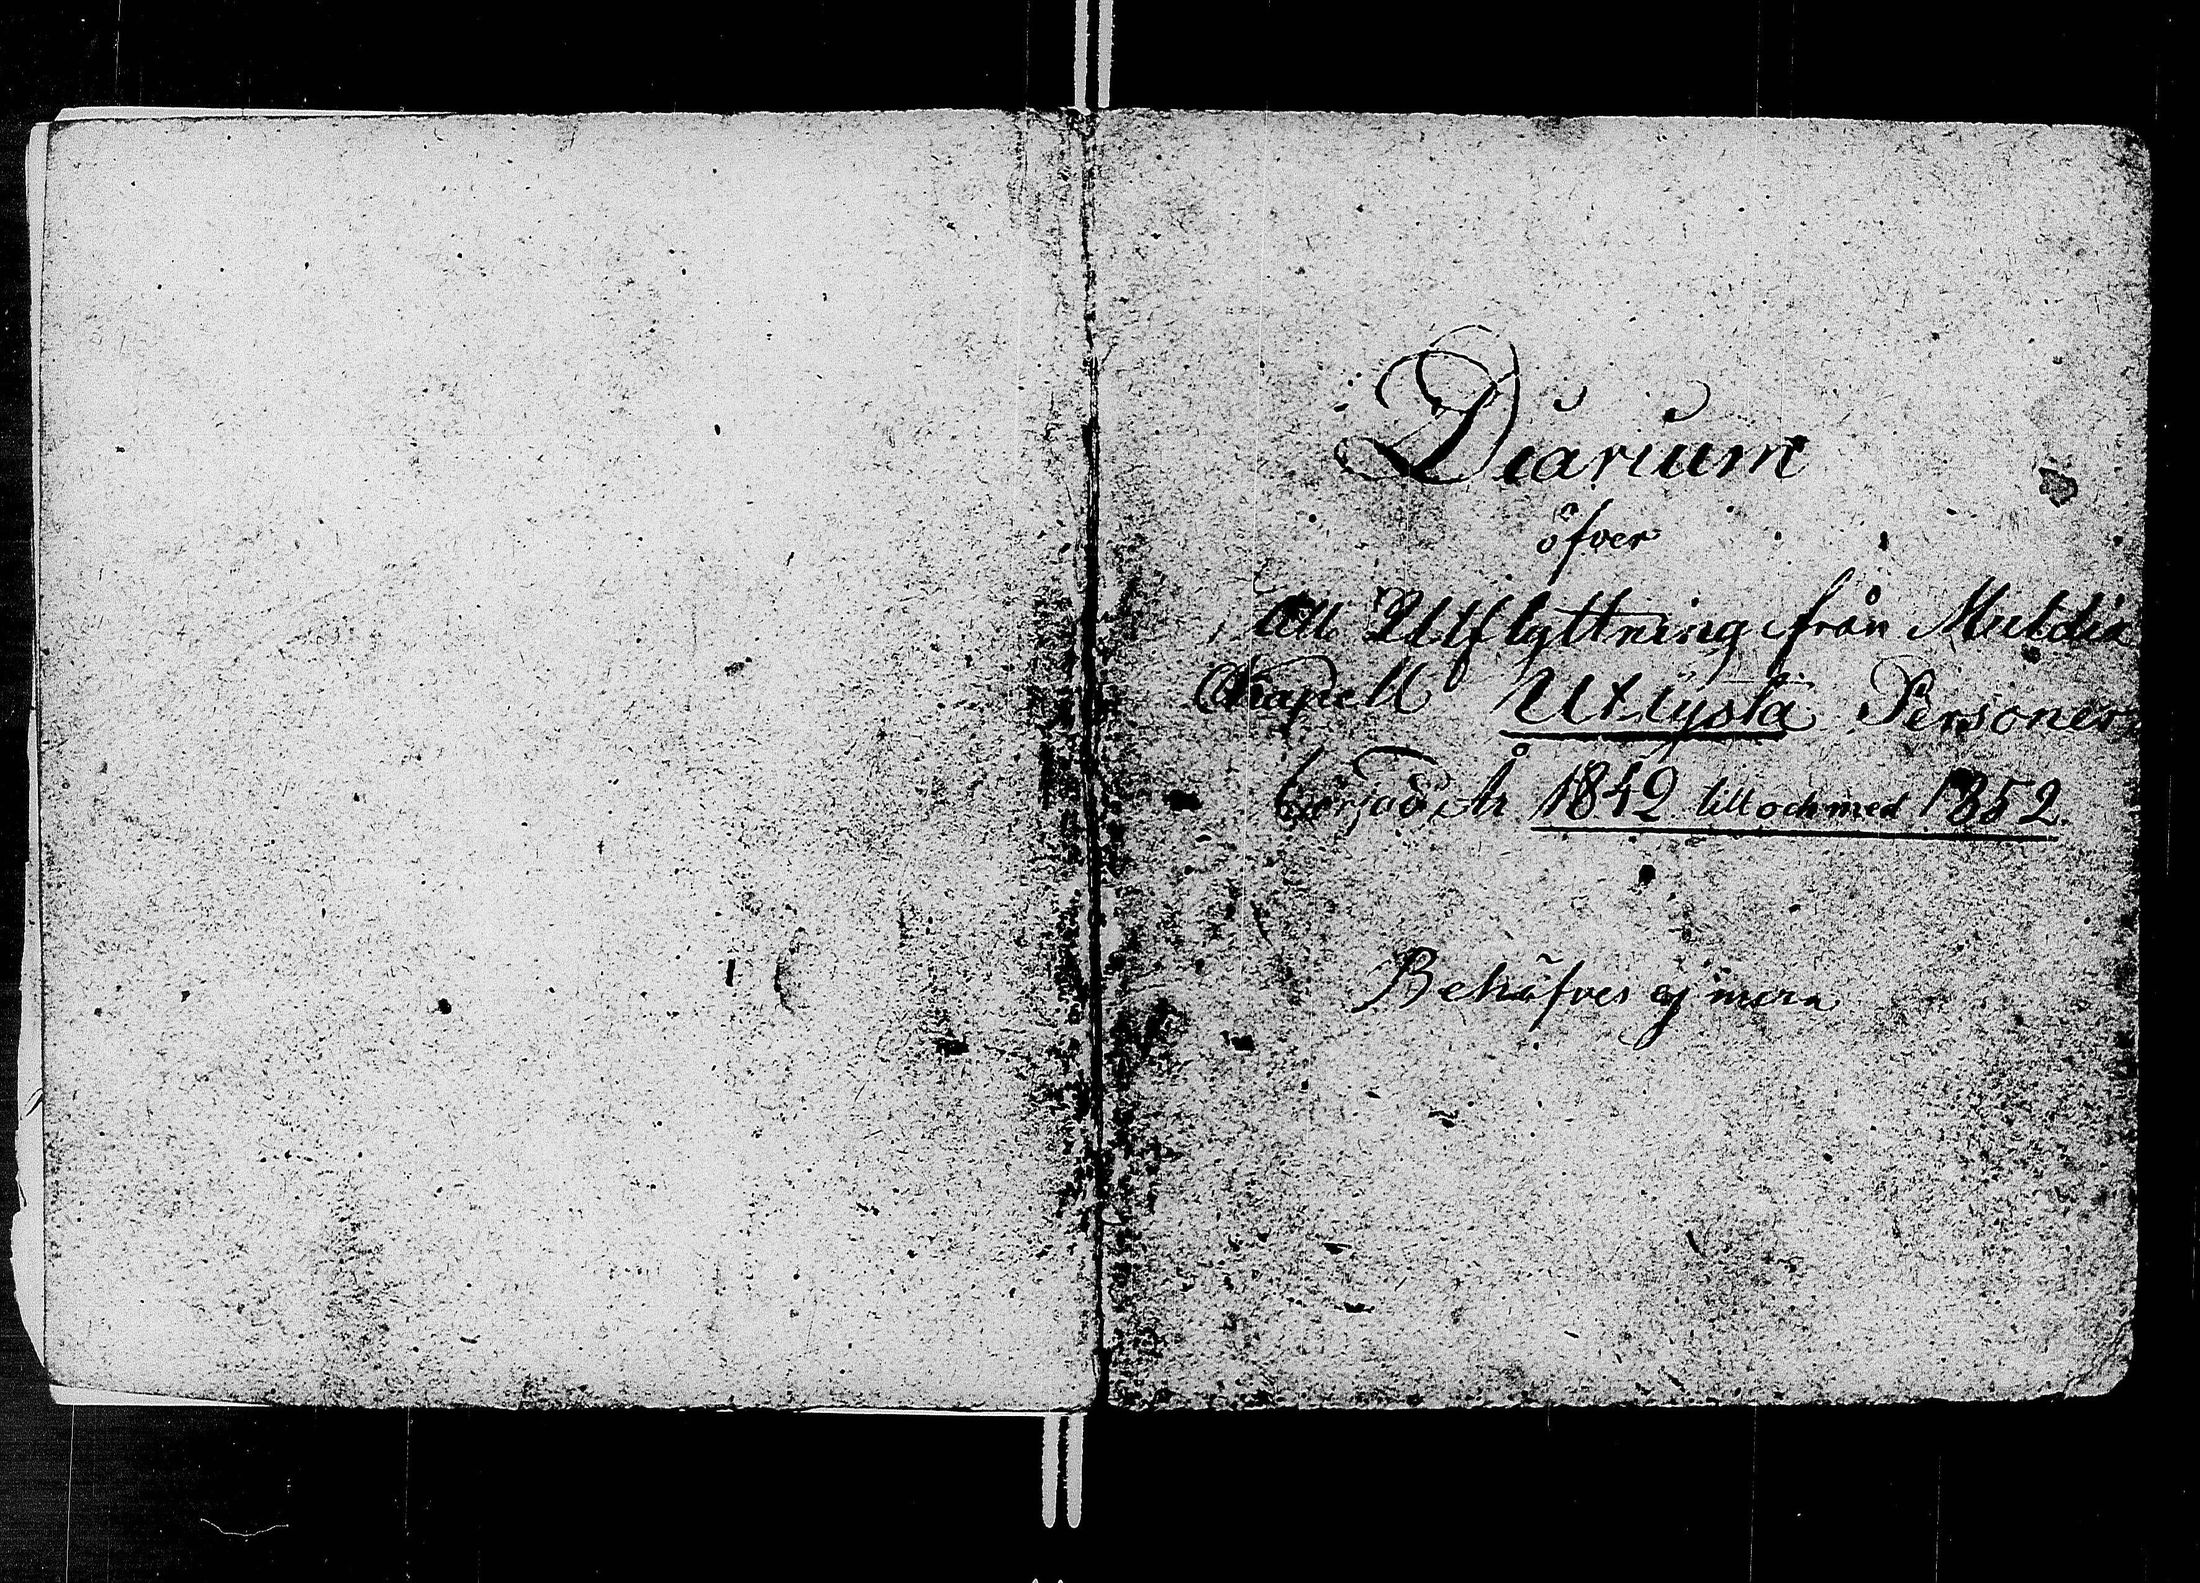 Diarium
öfver
till Utflyttning från Muldia
Capell Utlysta Personer
börjad År 1842 till och med 1852.
Behöfves ej mera